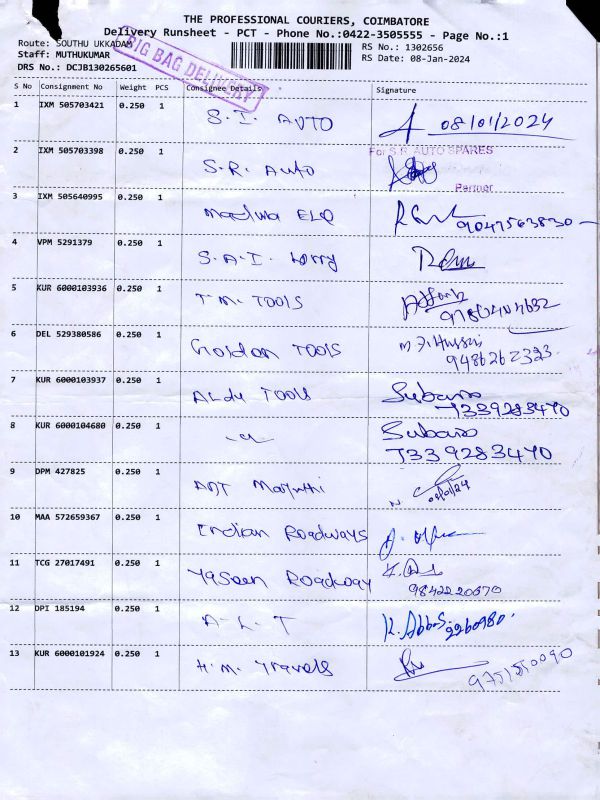 THE PROFESSIONAL COURIERS, COIMBATORE
Delivery Runsheet - PCT - Phone No.:0422-3505555 - Page No.:1
Route: SOUTHU UKKADAM
RS No.: 1302656
Staff: MUTHUKUMAR
RS Date: 08-Jan-2024
DRS No.: DCJB130265601
BIG BAG DELIVERY
S No Consignment No Weight PCS Consignee Details Signature
1 IXM 505703421 0.250 1 S.I. AUTO 08/01/2024
2 IXM 505703398 0.250 1 S.R. Auto For S.R. AUTO SPARES
Partner
3 IXM 505640995 0.250 1 ELE
4 VPM 5291379 0.250 1 S.A.I. Lorry
5 KUR 6000103936 0.250 1 T.M. TOOLS
6 DEL 529380586 0.250 1 Golden TOOLS
7 KUR 6000103937 0.250 1 TOOLS
7339283470
8 KUR 6000104680 0.250 1
7339283470
9 DPM 427825 0.250 1
10 MAA 572659367 0.250 1 Indian Roadways
11 TCG 27017491 0.250 1 Yaseen Roadway
12 DPI 185194 0.250 1 A.K.T K. Abbas
13 KUR 6000101924 0.250 1 H.M. Travels